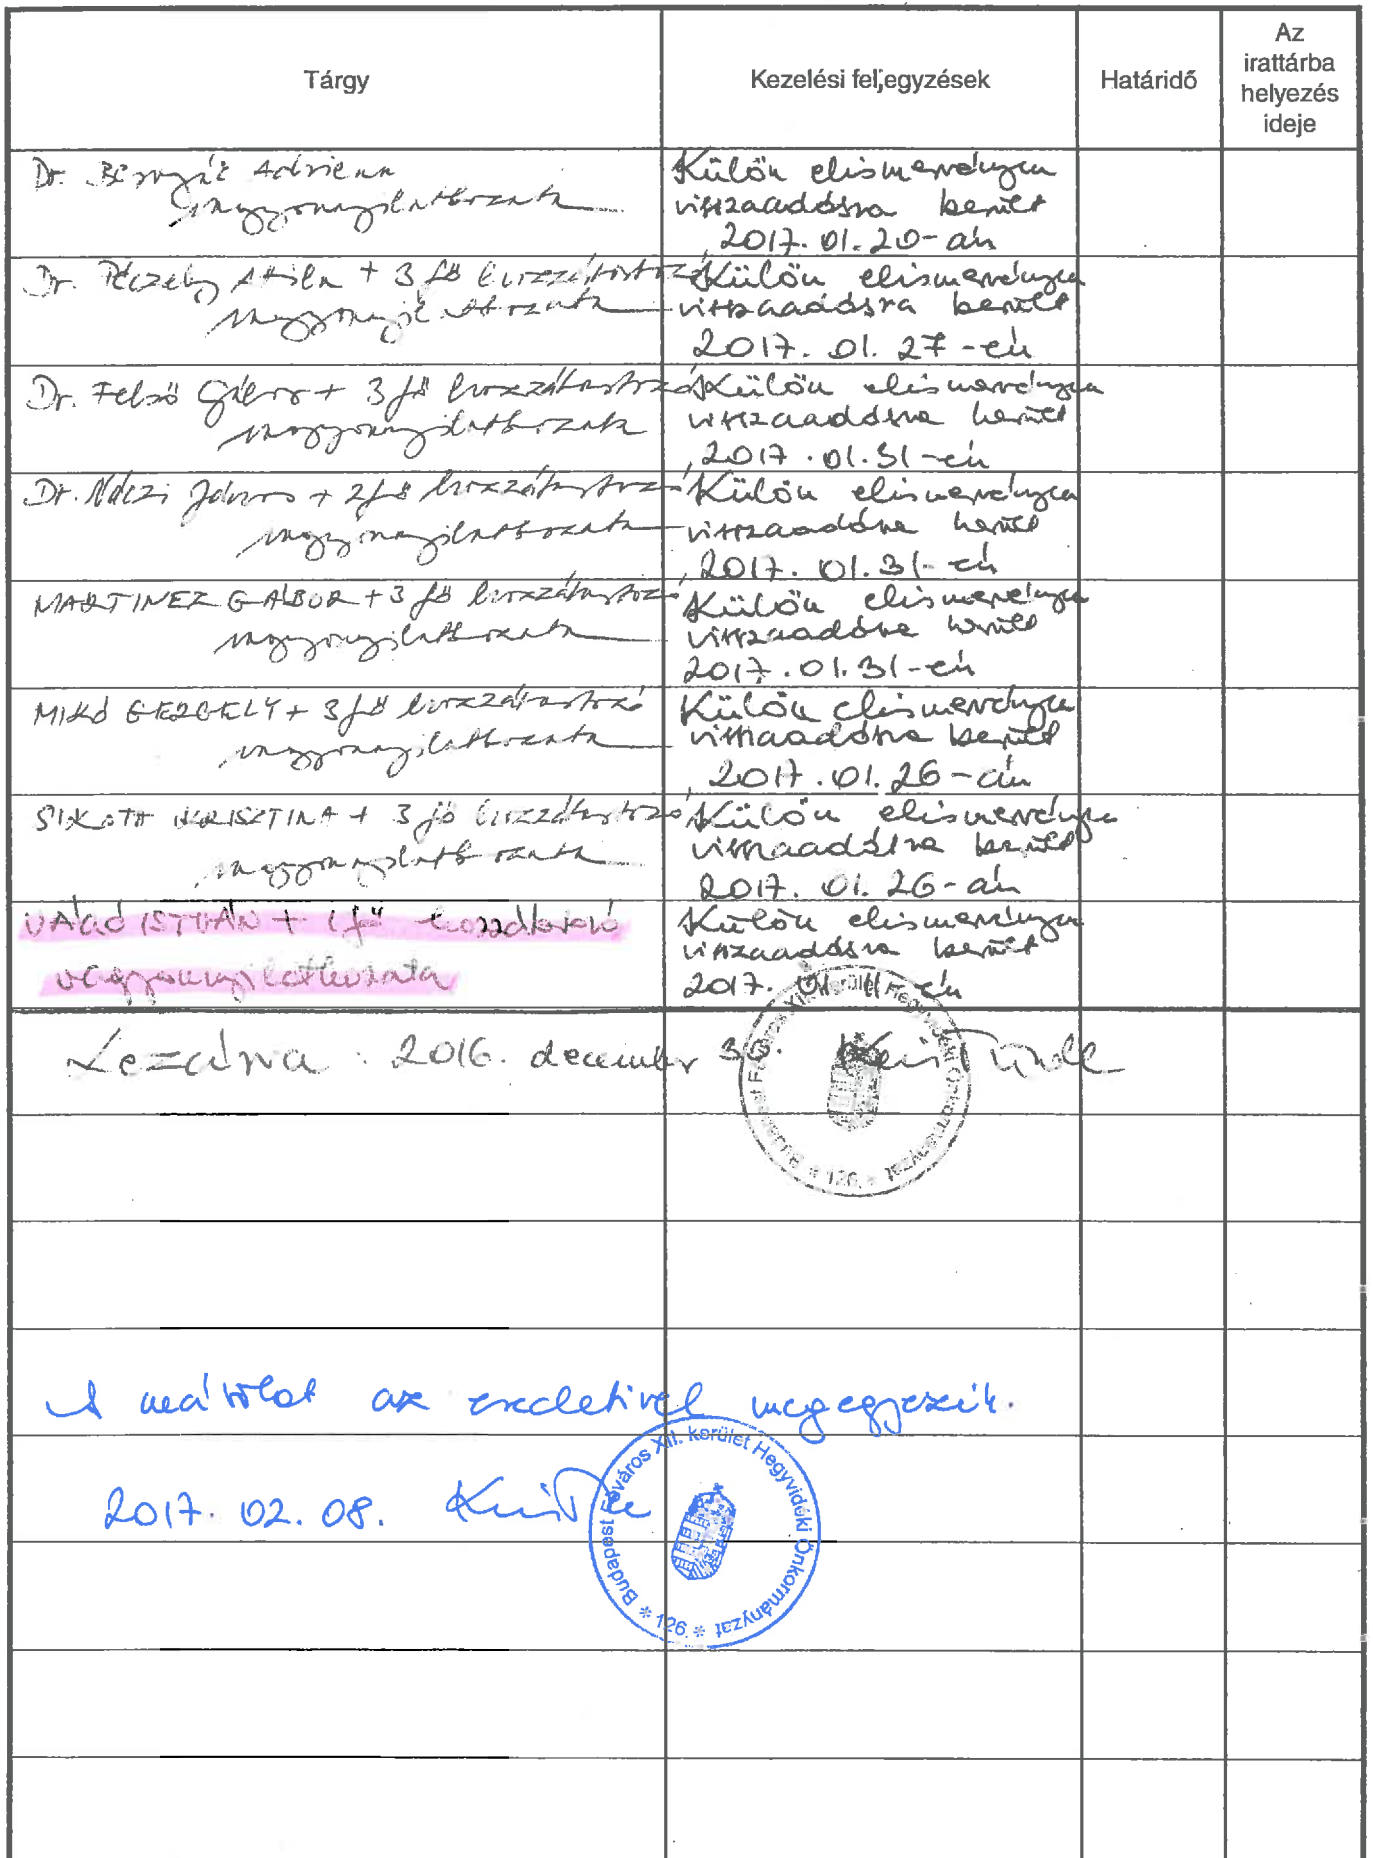 Tárgy
Kezelési feljegyzések
Határidő
Az
irattárba
helyezés
ideje
Dr. Adrienn
vagyonnyilatkozata
Külön elismervényen
visszaadásra került
2017. 01. 20-án
Dr. Péczely Attila + 3 fő hozzátartozó
vagyonnyilatkozata
Külön elismervényen
visszaadásra került
2017. 01. 27-én
Dr. Felső Gábor + 3 fő hozzátartozó
vagyonnyilatkozata
Külön elismervényen
visszaadásra került
2017. 01. 31-én
Dr. Váczi János + 2 fő hozzátartozó
vagyonnyilatkozata
Külön elismervényen
visszaadásra került
2017. 01. 31-én
MARTINEZ GÁBOR + 3 fő hozzátartozó
vagyonnyilatkozata
Külön elismervényen
visszaadásra került
2017. 01. 31-én
MIKÓ GERGELY + 3 fő hozzátartozó
vagyonnyilatkozata
Külön elismervényen
visszaadásra került
2017. 01. 26-án
KRISZTINA + 3 fő hozzátartozó
vagyonnyilatkozata
Külön elismervényen
visszaadásra került
2017. 01. 26-án
ISTVÁN + 1 fő hozzátartozó
vagyonnyilatkozata
Külön elismervényen
visszaadásra került
2017. 01. 11-én
Lezárva: 2016. december 30.
Budapest Főváros XII. kerület Hegyvidéki Önkormányzat * 126. *
A másolat az eredetivel megegyezik.
2017. 02. 08.
Budapest Főváros XII. kerület Hegyvidéki Önkormányzat * 126. *